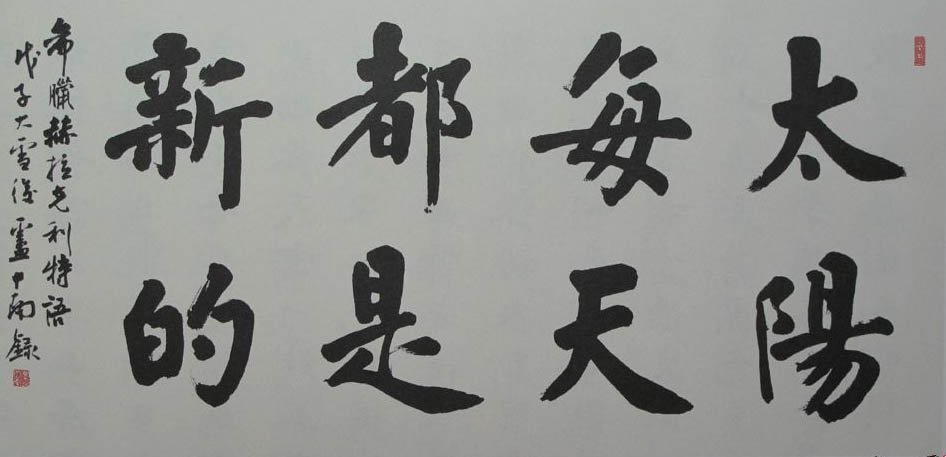 太陽
每天
都是
新的
希臘赫拉克利特語
戊子大雪後盧中南錄